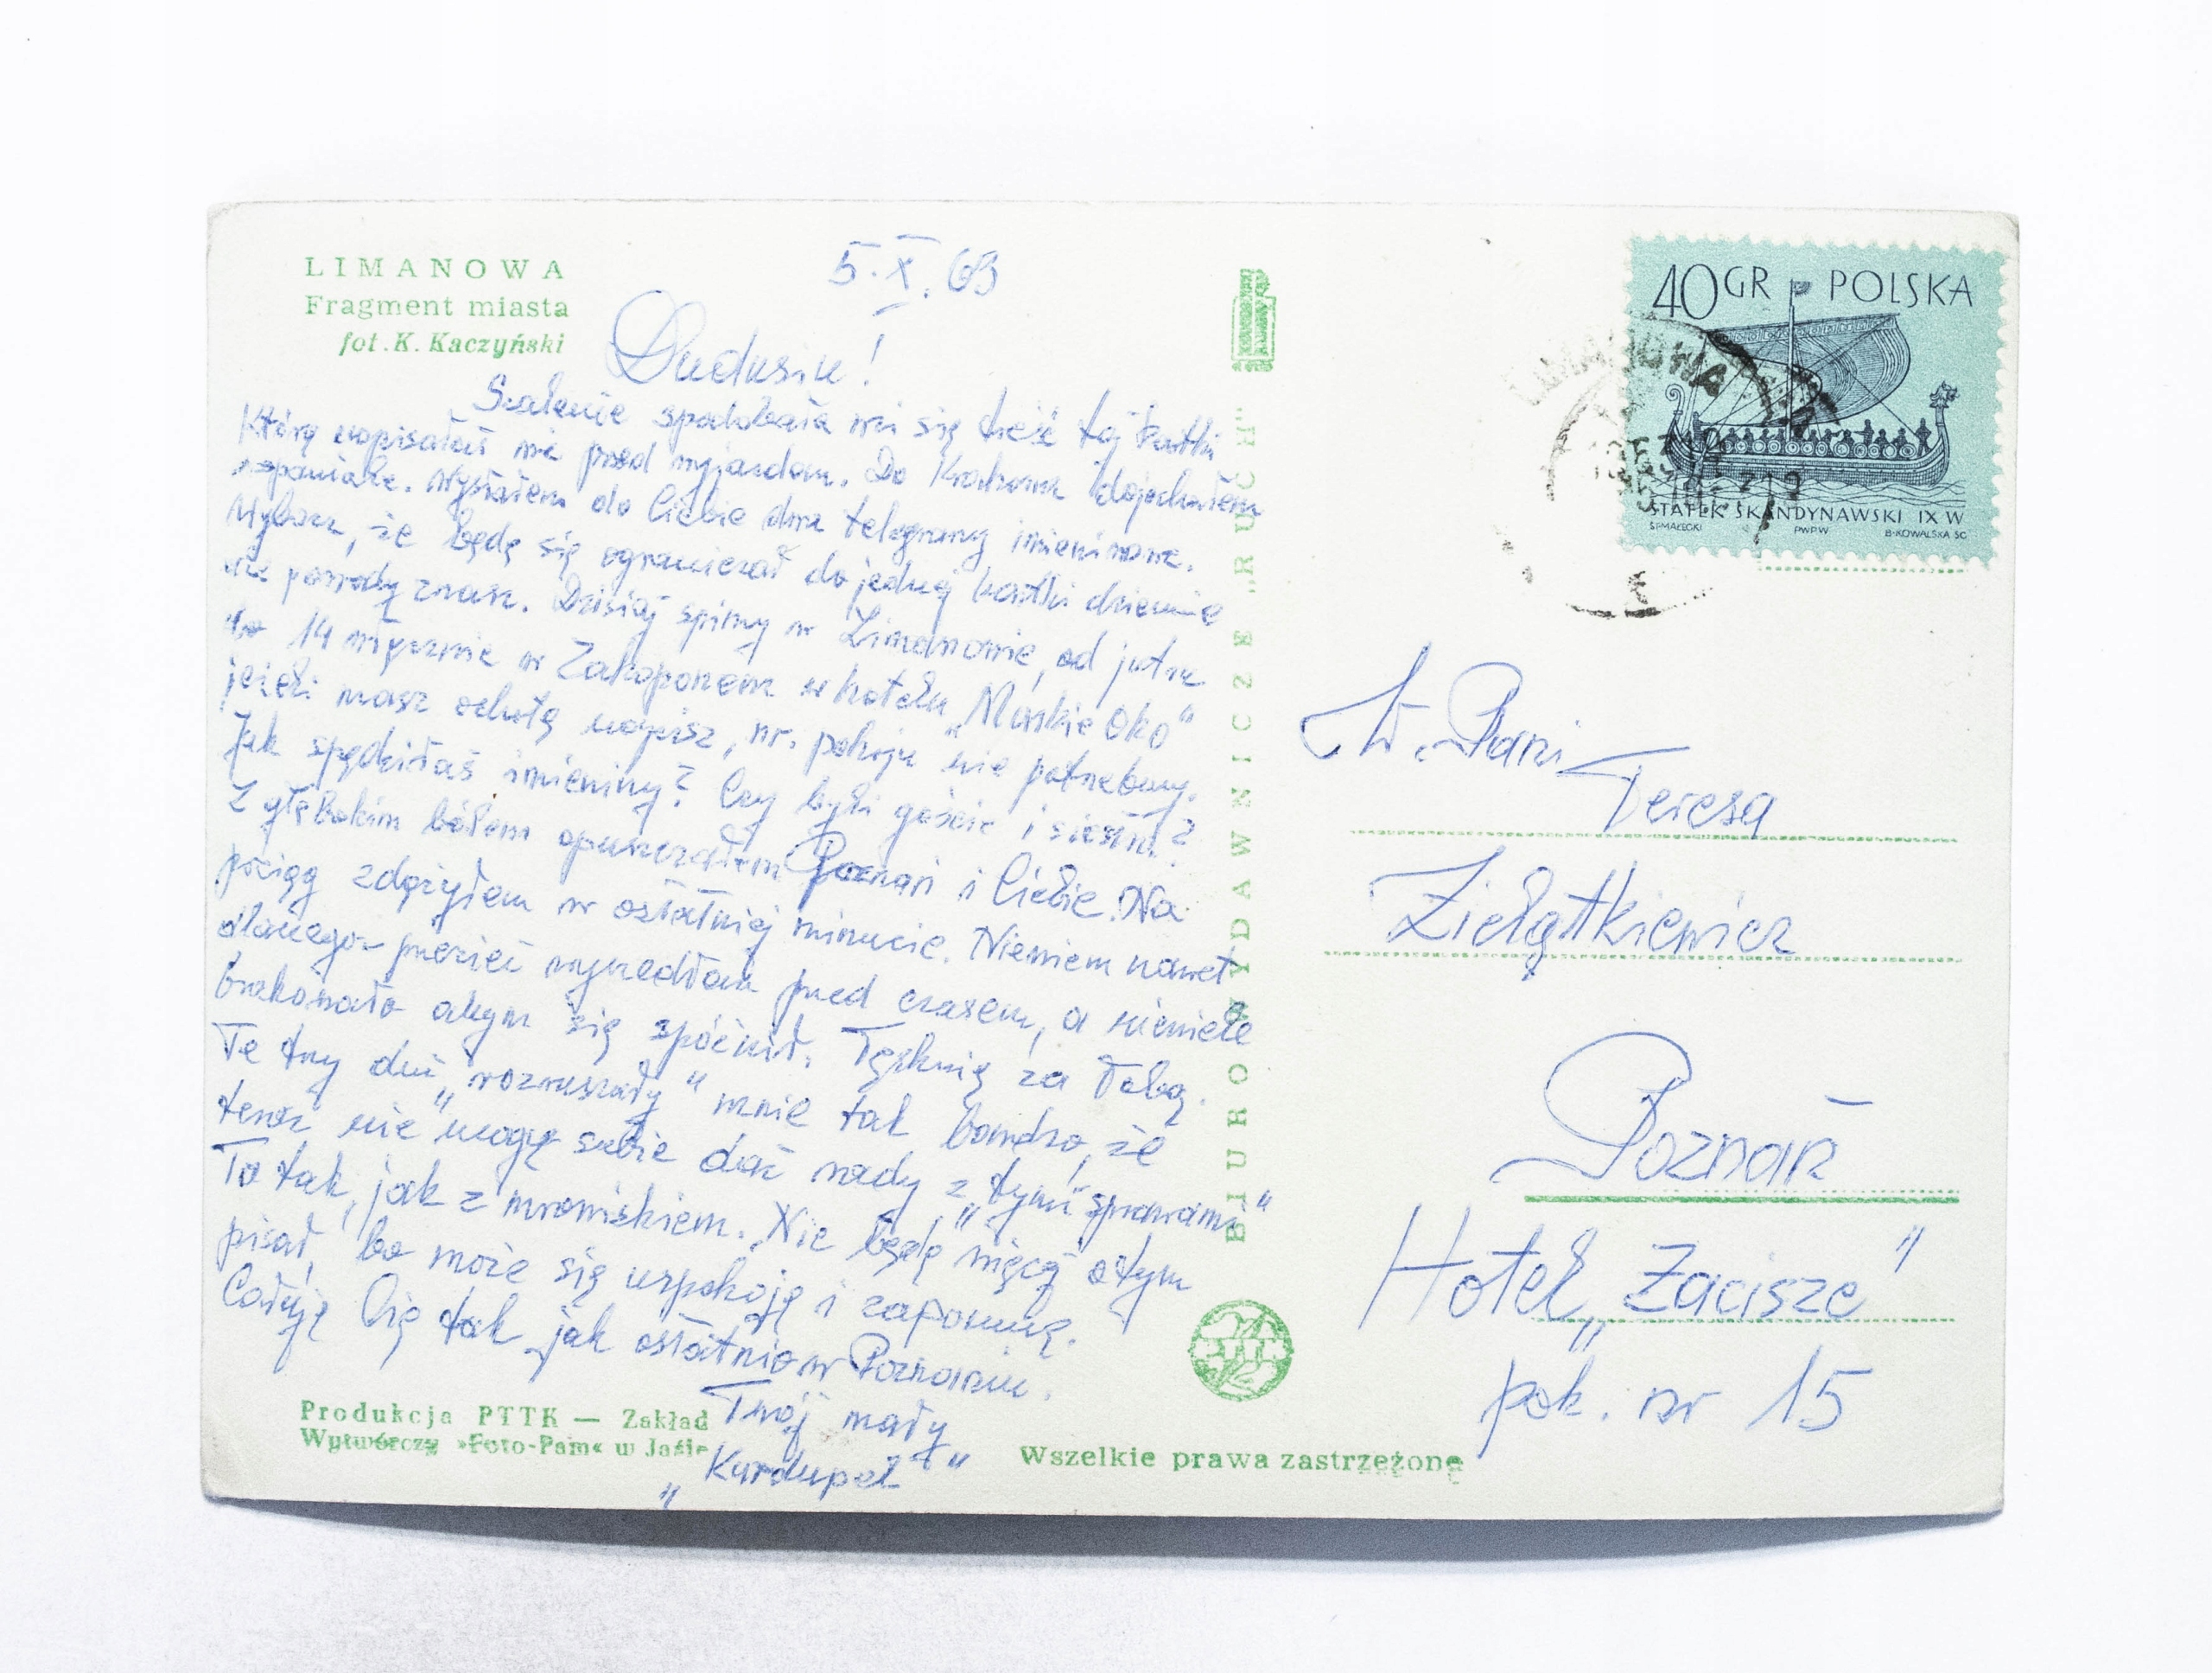 LIMANOWA
Fragment miasta
fot. K. Kaczyński
5.X.63
Dudusiu!
Szalenie spodobała mi się treść tej kartki
którą napisałaś mi przed wyjazdem. Do Krakowa dojechałem
wspaniale. Wysłałem do Ciebie dwa telegramy imieninowe.
Wybacz, że będę się ograniczał do jednej kartki dziennie
powody znasz. Dzisiaj śpimy w Limanowie, od jutra
do 14 włącznie w Zakopanem w hotelu „Morskie Oko"
jeżeli masz ochotę napisz, nr. pokoju nie potrzebny.
Jak spędziłaś imieniny? Czy byli goście i
Z głębokim bólem opuszczałem Poznań i Ciebie. Na
pociąg zdążyłem w ostatniej minucie. Niewiem nawet
dlaczego przecież wyszedłem przed czasem, a niewiele
brakowało abym się spóźnił. Tęsknię za Tobą.
Te trzy dni „rozruszały" mnie tak bardzo, że
teraz nie mogę sobie dać rady z „tymi sprawami"
To tak, jak z mrowiskiem. Nie będę więcej o tym
pisał, bo może się uspokoję i zapomnę.
Całuję Cię tak jak ostatnio w Poznaniu.
Twój mały
„Kurdupel"
Produkcja PTTK — Zakład
Wytwórczy »Foto-Pam« w Jaśle
Wszelkie prawa zastrzeżone
BIURO WYDAWNICZE „RUCH"
PTTK
40 GR POLSKA
STATEK SKANDYNAWSKI IX W
S.MAŁECKI PWPW B.KOWALSKA SC
LIMANOWA
W. Pani
Teresa
Zielątkiewicz
Poznań
Hotel „Zacisze"
pok. nr 15